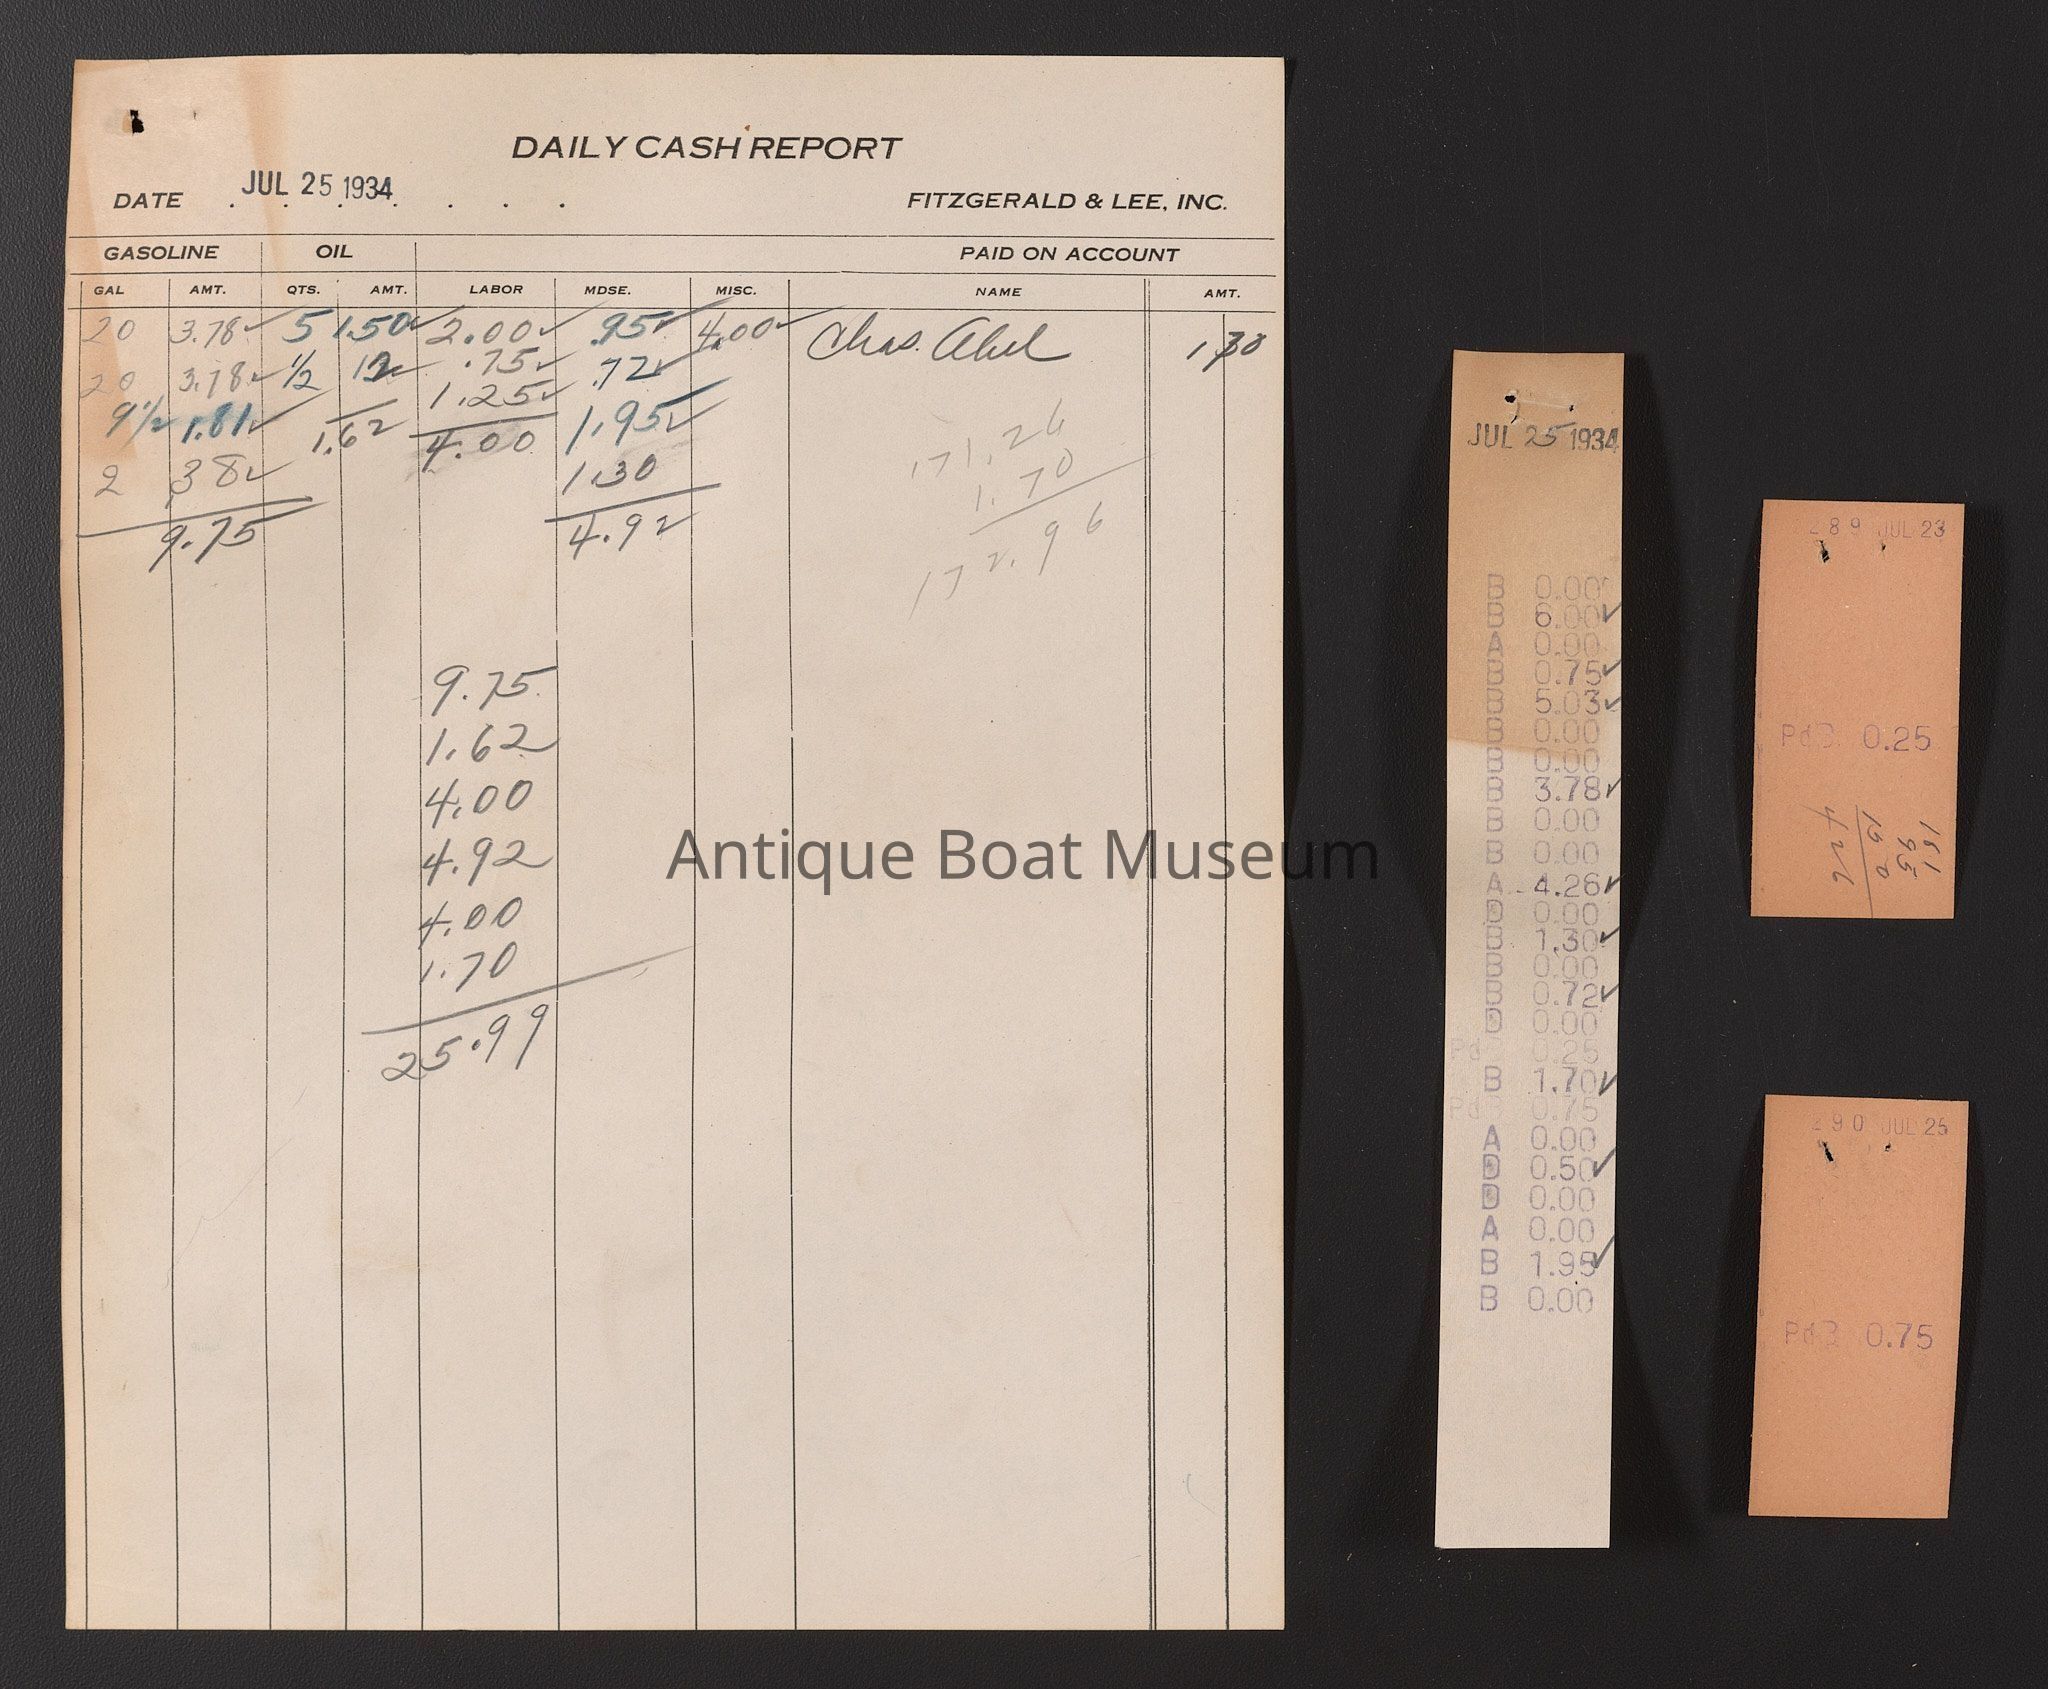 DAILY CASH REPORT
DATE JUL 25 1934 FITZGERALD & LEE, INC.
GASOLINE OIL PAID ON ACCOUNT
GAL AMT. QTS. AMT. LABOR MDSE. MISC. NAME AMT.
20 3.78✓ 5 1.50✓ 2.00✓ .95✓ 4.00✓ Chas. Abel 1.70
20 3.78✓ 1/2 12✓ .75✓ .72✓
9 1/2 1.81✓ 1.62 1.25✓ 1.95✓
2 38✓ 4.00 1.30
9.75 4.92
171.26
1.70
172.96
9.75
1.62
4.00
4.92
4.00
1.70
25.99
Antique Boat Museum
JUL 25 1934
B 0.00
B 6.00✓
A 0.00
B 0.75✓
B 5.03✓
B 0.00
B 0.00
B 3.78✓
B 0.00
B 0.00
A 4.26✓
D 0.00
B 1.30✓
B 0.00
B 0.72✓
D 0.00
Pd 0.25
B 1.70✓
Pd 0.75
A 0.00
D 0.50✓
D 0.00
A 0.00
B 1.95✓
B 0.00
289 JUL 23
PdB 0.25
181
95
150
426
290 JUL 25
PdB 0.75